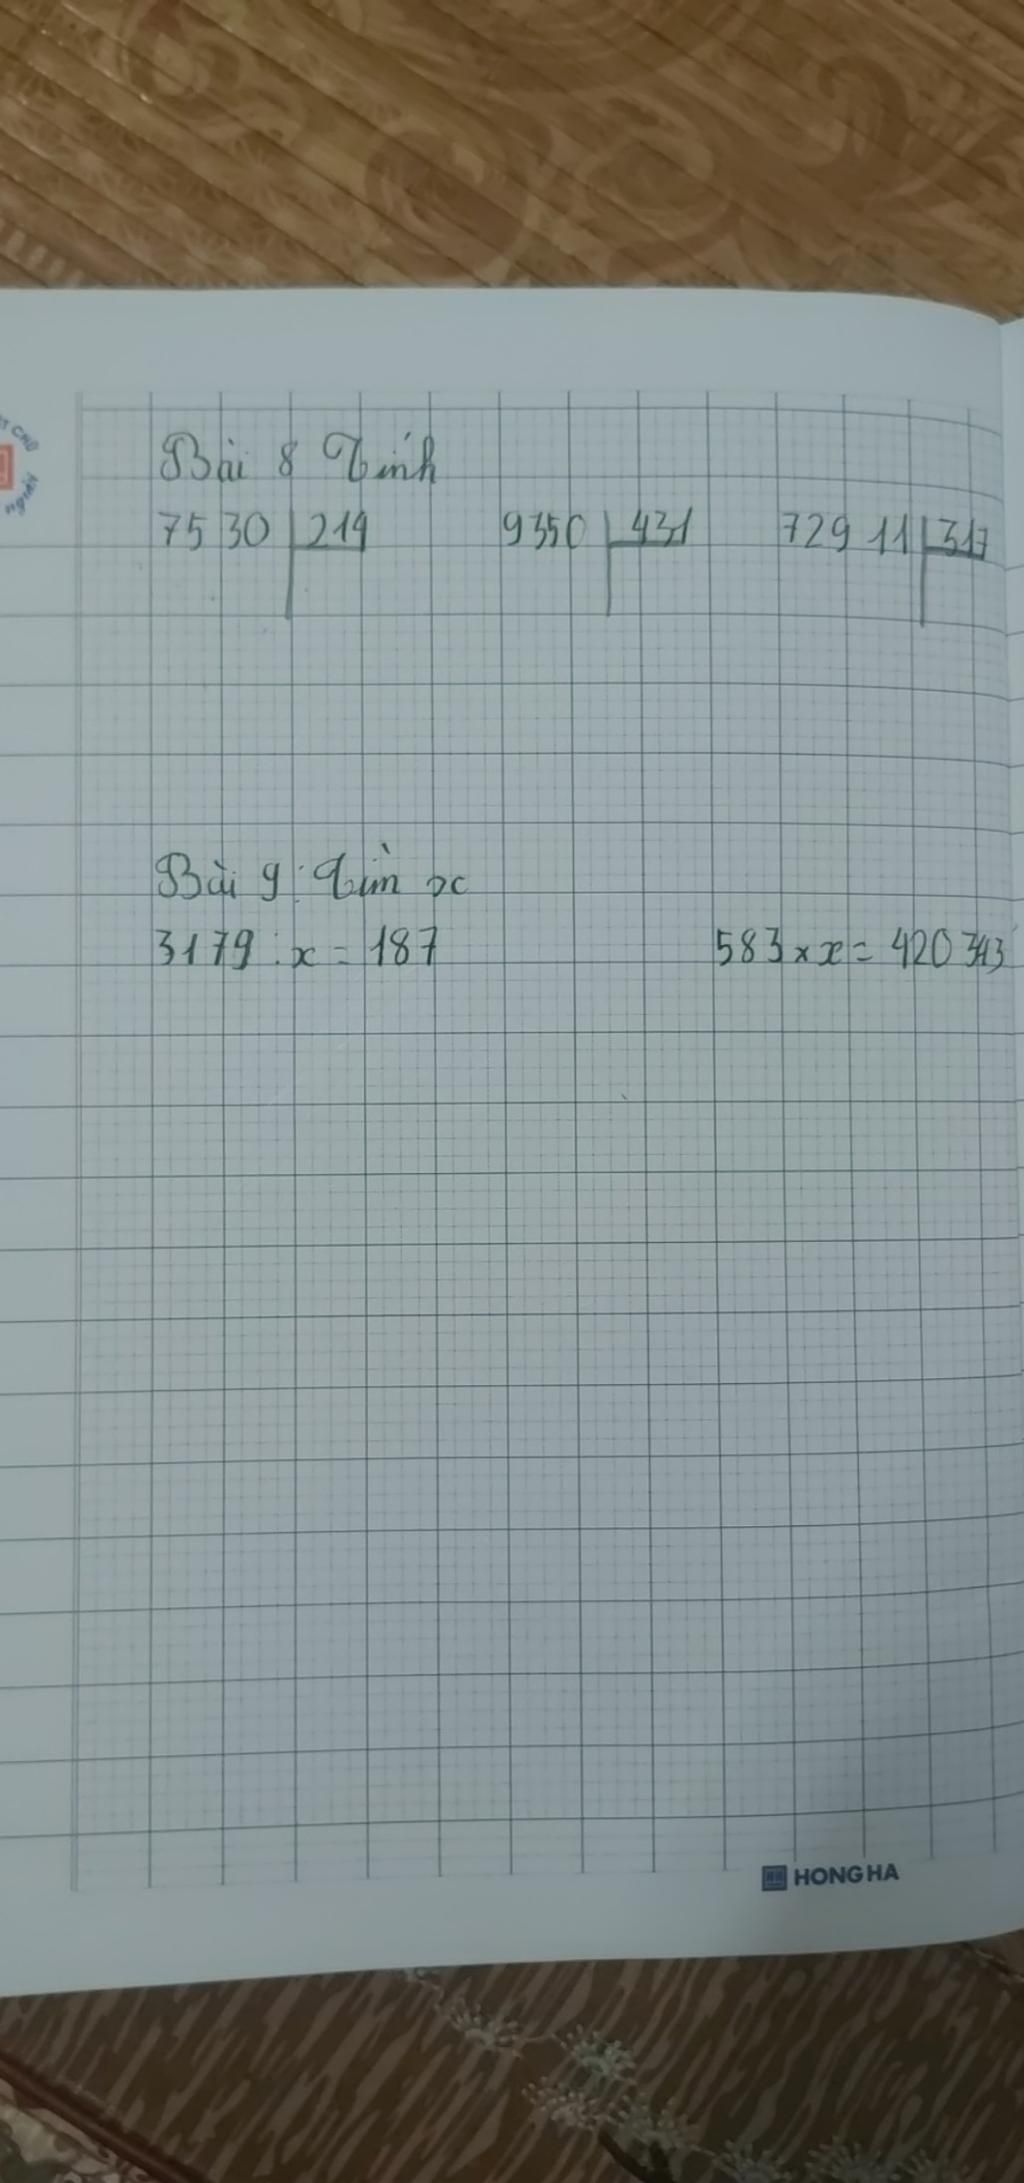 Bài 8 Tính
7530 | 214 9350 | 431 72911 | 317
Bài 9: Tìm x
3179 : x = 187 583 × x = 420343
HONG HA